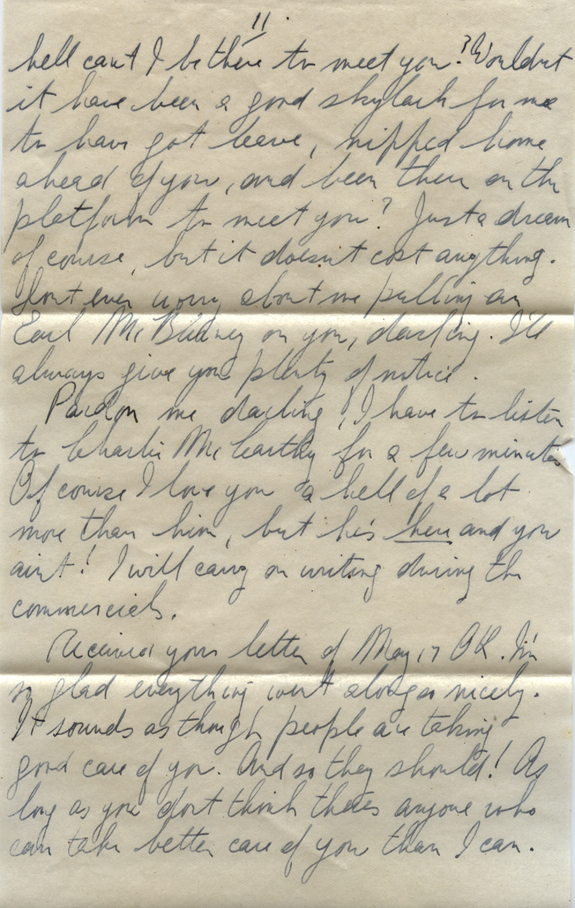 11.
hell can't I be there to meet you? Wouldnt
it have been a good skylark for me
to have got leave, nipped home
ahead of you, and been there on the
platform to meet you? Just a dream
of course, but it doesn't cost anything.
Dont ever worry about me pulling an
Earl Mc on you, darling. I'll
always give you plenty of notice.
Pardon me darling, I have to listen
to Charlie McCarthy for a few minutes
Of course I love you a hell of a lot
more than him, but he's here and you
aint! I will carry on writing during the
commercials.
Received your letter of May 17 OK. I'm
so glad everything went along so nicely.
It sounds as though people are taking
good care of you. And so they should! As
long as you dont think theres anyone who
can take better care of you than I can.